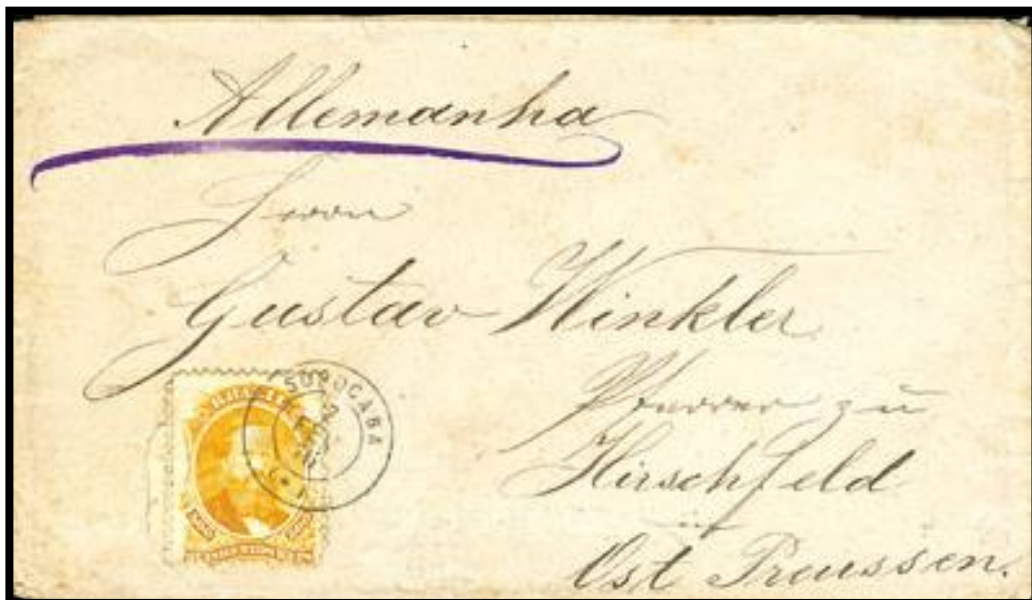 Allemanha
Herrn
Gustav Winkler
Pfarrer zu
Hirschfeld
Ost Preussen.
SOROCABA